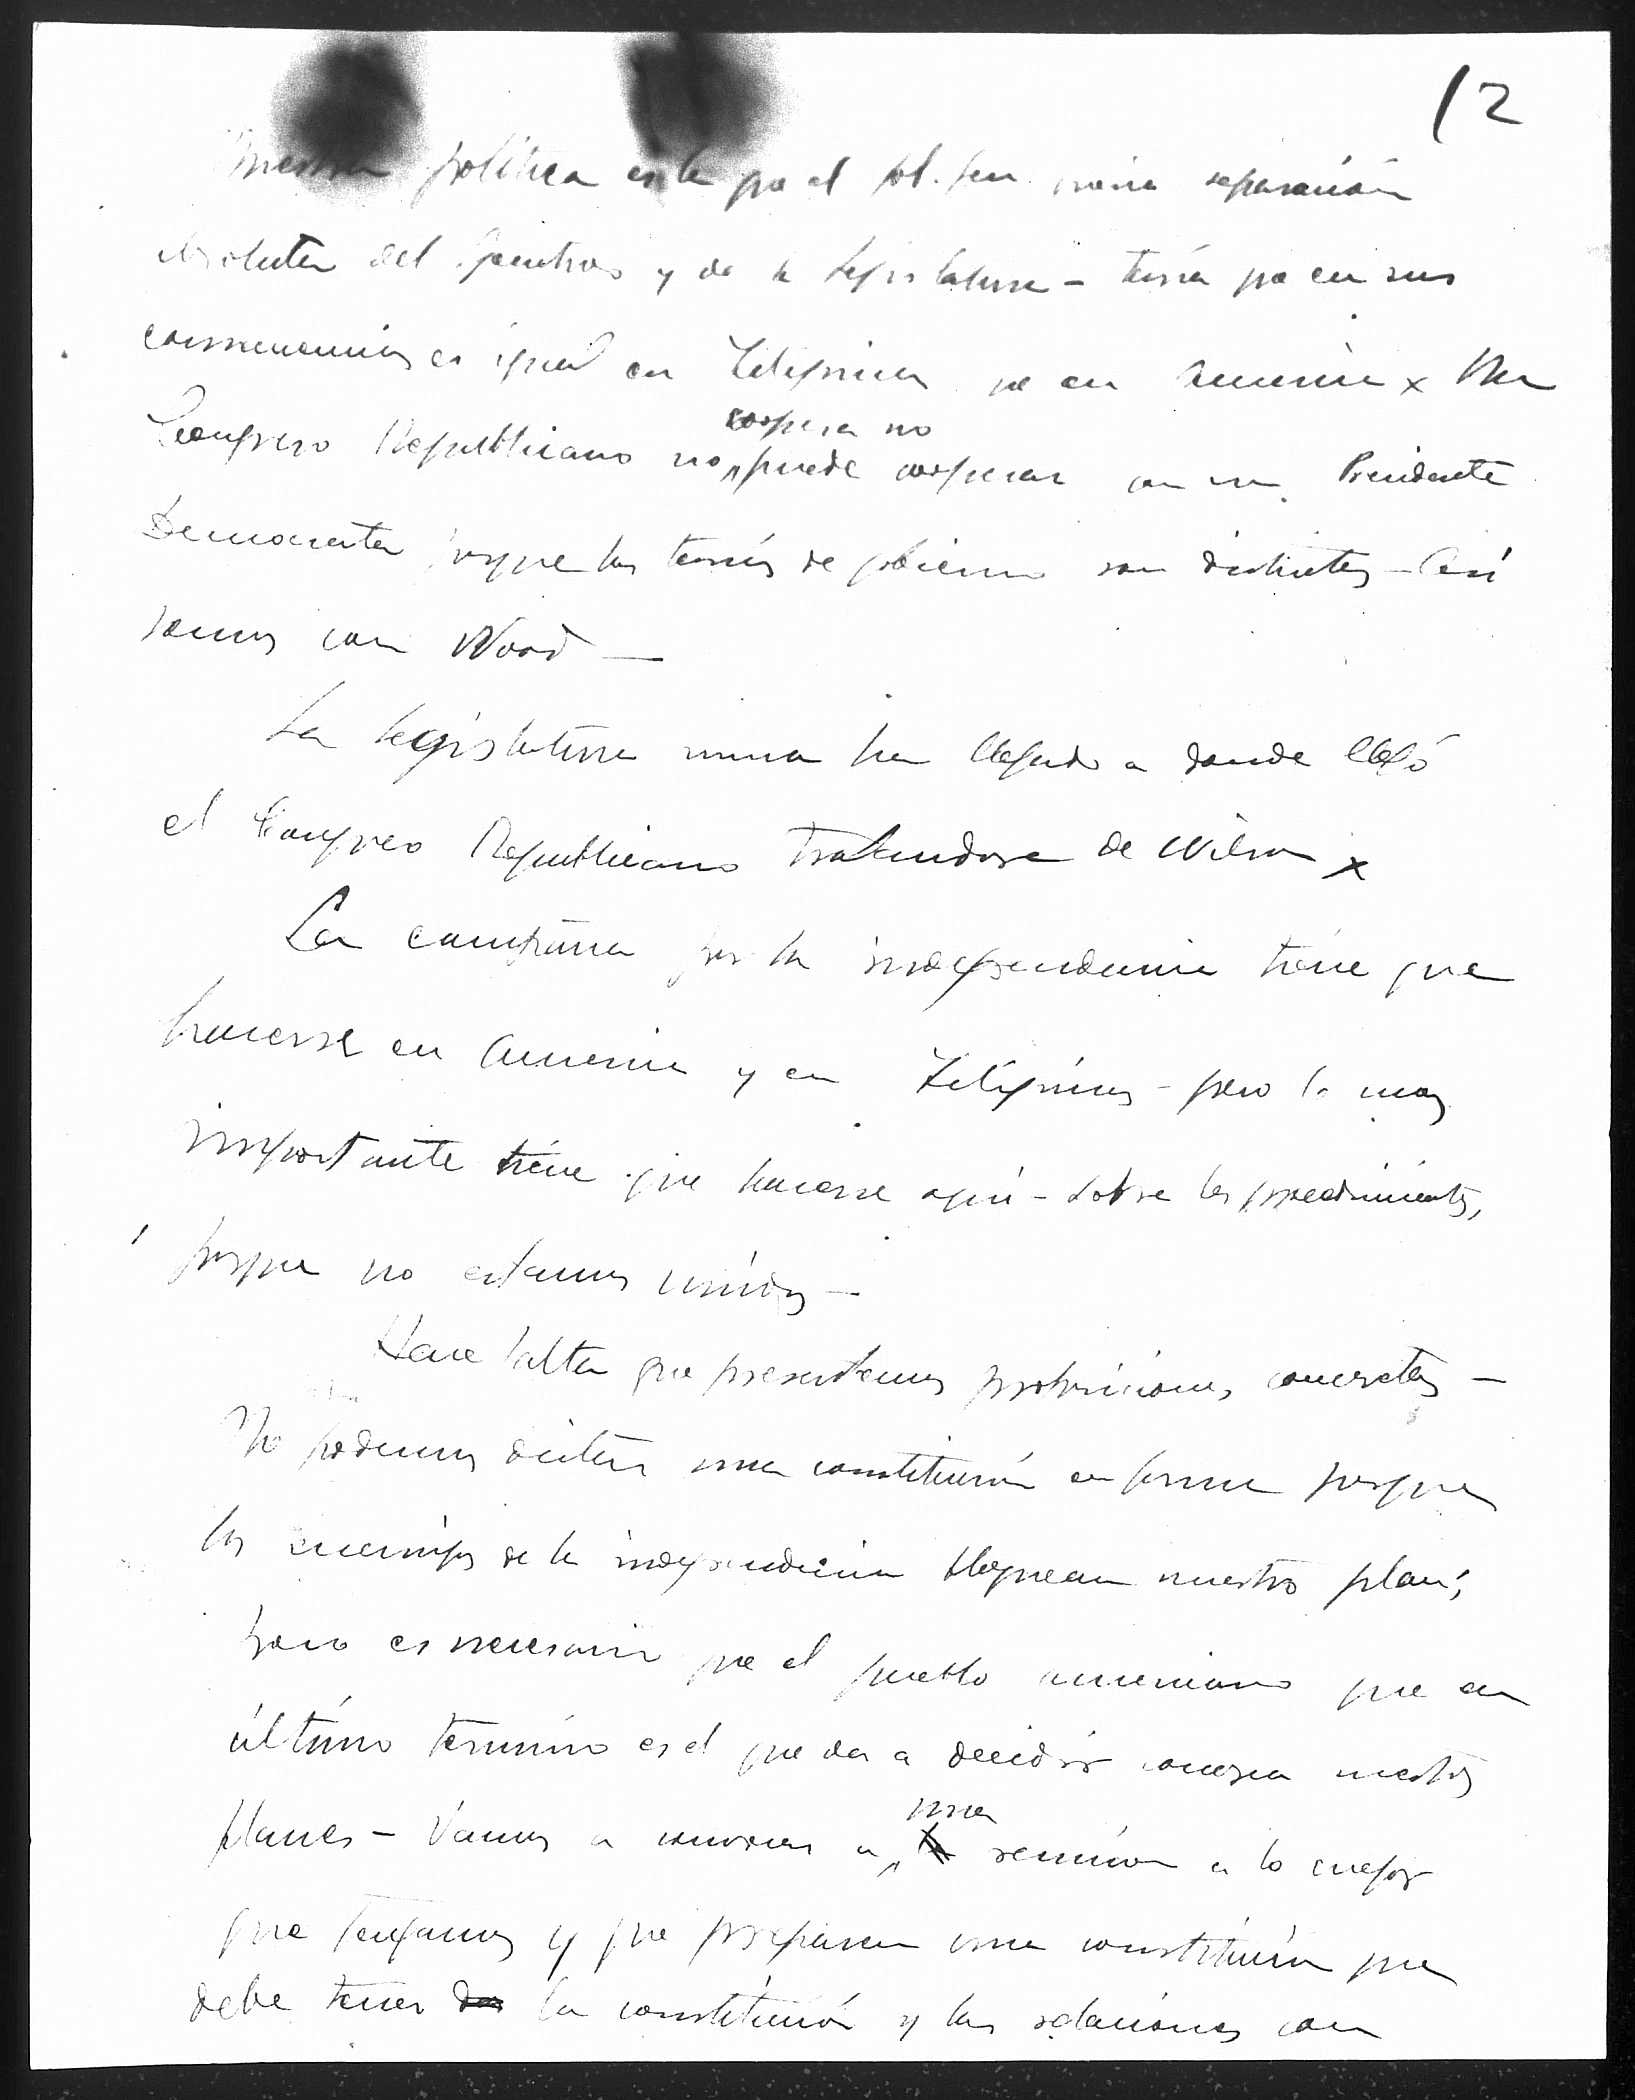 12
política es la que el Gob. Gen. crea separación
absoluta del Ejecutivo y de la Legislatura - teoría que en sus
consecuencias es igual en Filipinas que en America x Un
Congreso Republicano no coopera no puede cooperar con un Presidente
Democrata porque las teorías de gobierno son distintas - Asi
somos con Wood -
La legislatura nunca ha llegado a donde llegó
el Congreso Republicano tratandose de Wilson x
La campaña por la independencia tiene que
hacerse en America y en Filipinas - pero lo mas
importante tiene que hacerse aquí - sobre los procedimientos,
porque no estamos unidos -
Hace falta que presentemos proposiciones concretas -
No podemos dictar una constitución en forma porque
los enemigos de la independencia bloquean nuestro plan;
pero es necesario que el pueblo americano que en
último termino es el que va a decidir conozca nuestros
planes - Vamos a convocar a una reunión a lo mejor
que tengamos y que preparen una constitución que
debe tener la constitución y las relaciones con